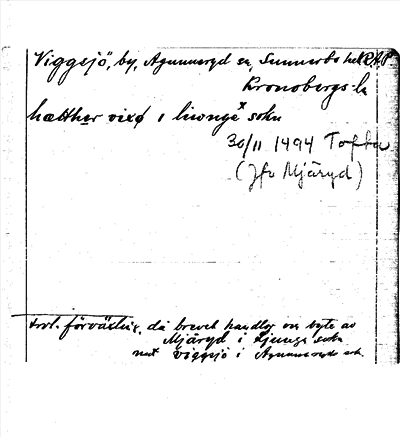 Viggesjö, by, Agunnaryd sn, Sunnerbo hd RAP
Kronobergs l.
hætther vixø i liwngæx sokn
30/11 1494 Tofta
(Jfr Mjäryd)
trol. förväxling, då brevet handlar om byte av
Mjäryd i Ljunga sokn
mot Viggsjö i Agunnaryds sn.